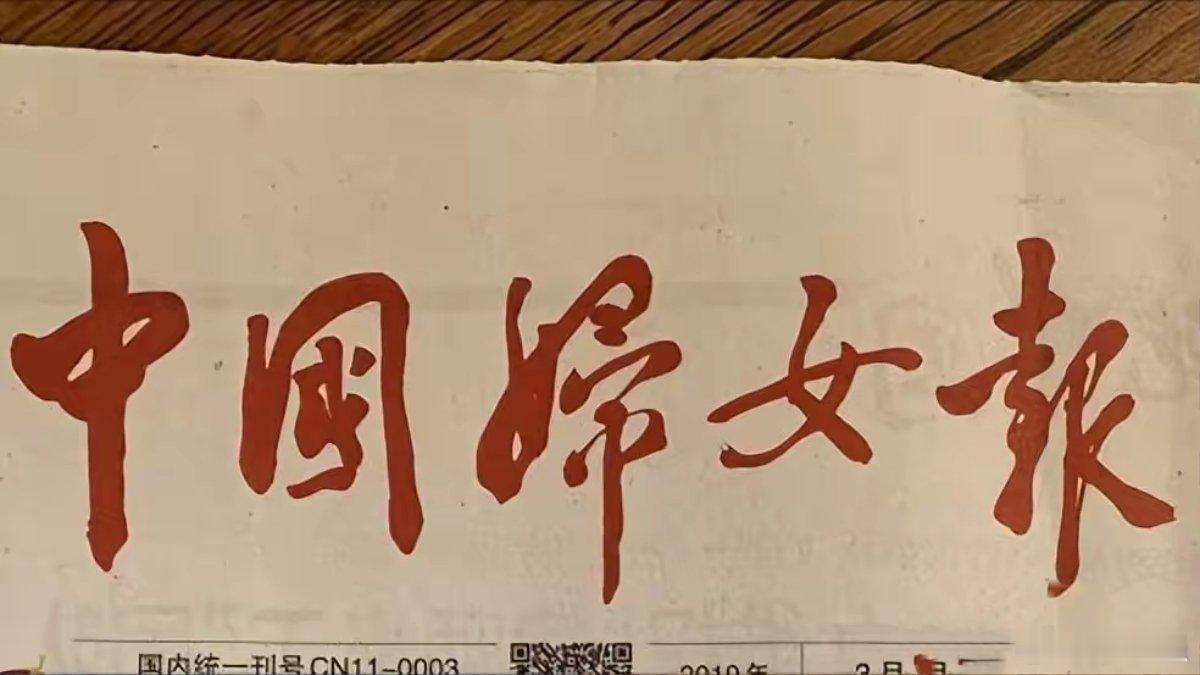 中國婦女報
国内统一刊号CN11-0003
2019年
3月